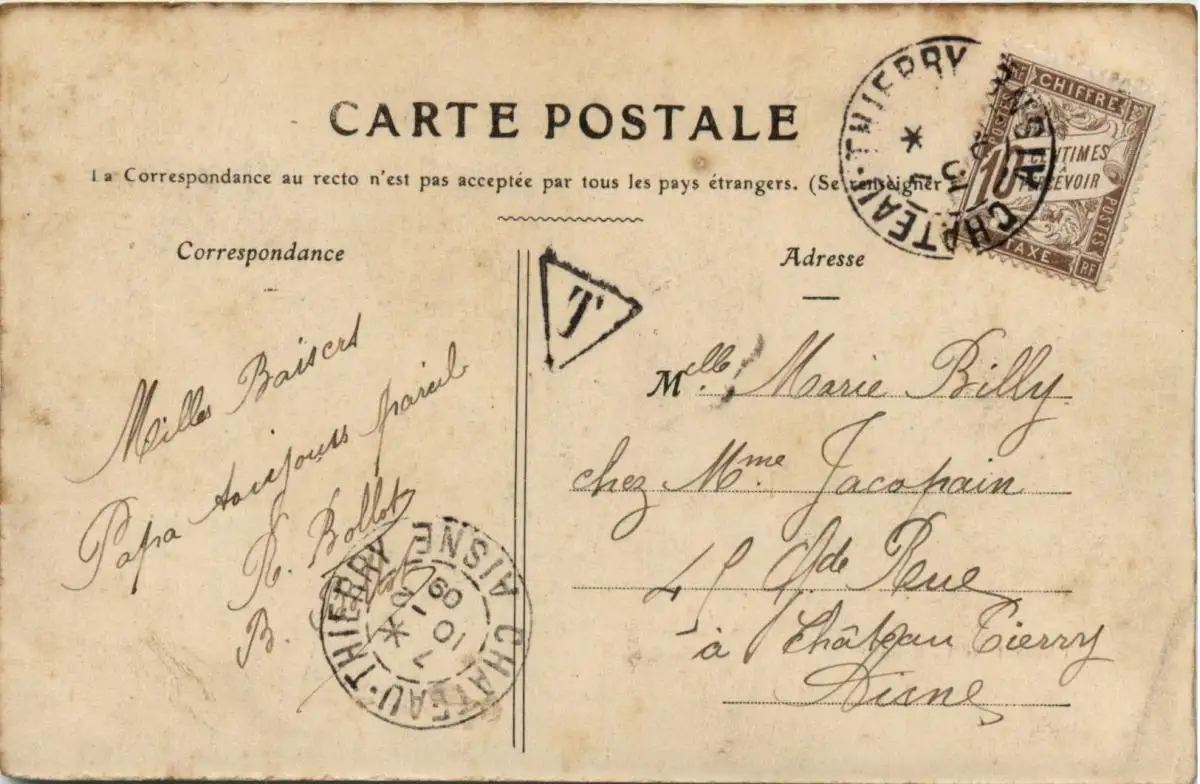 CARTE POSTALE
La Correspondance au recto n'est pas acceptée par tous les pays étrangers. (Se renseigner
Correspondance
Adresse
CHATEAU-THIERRY AISNE
RF CHIFFRE
POSTES
10 CENTIMES
A PERCEVOIR
POSTES
TAXE RF
T
Milles Baisers
Papa toujours pareil
R. Bollot
B.
Melle Marie Billy
chez Mme Jacopain
45 Gde Rue
à Château Tierry
Aisne
CHATEAU-THIERRY AISNE
10 7
09